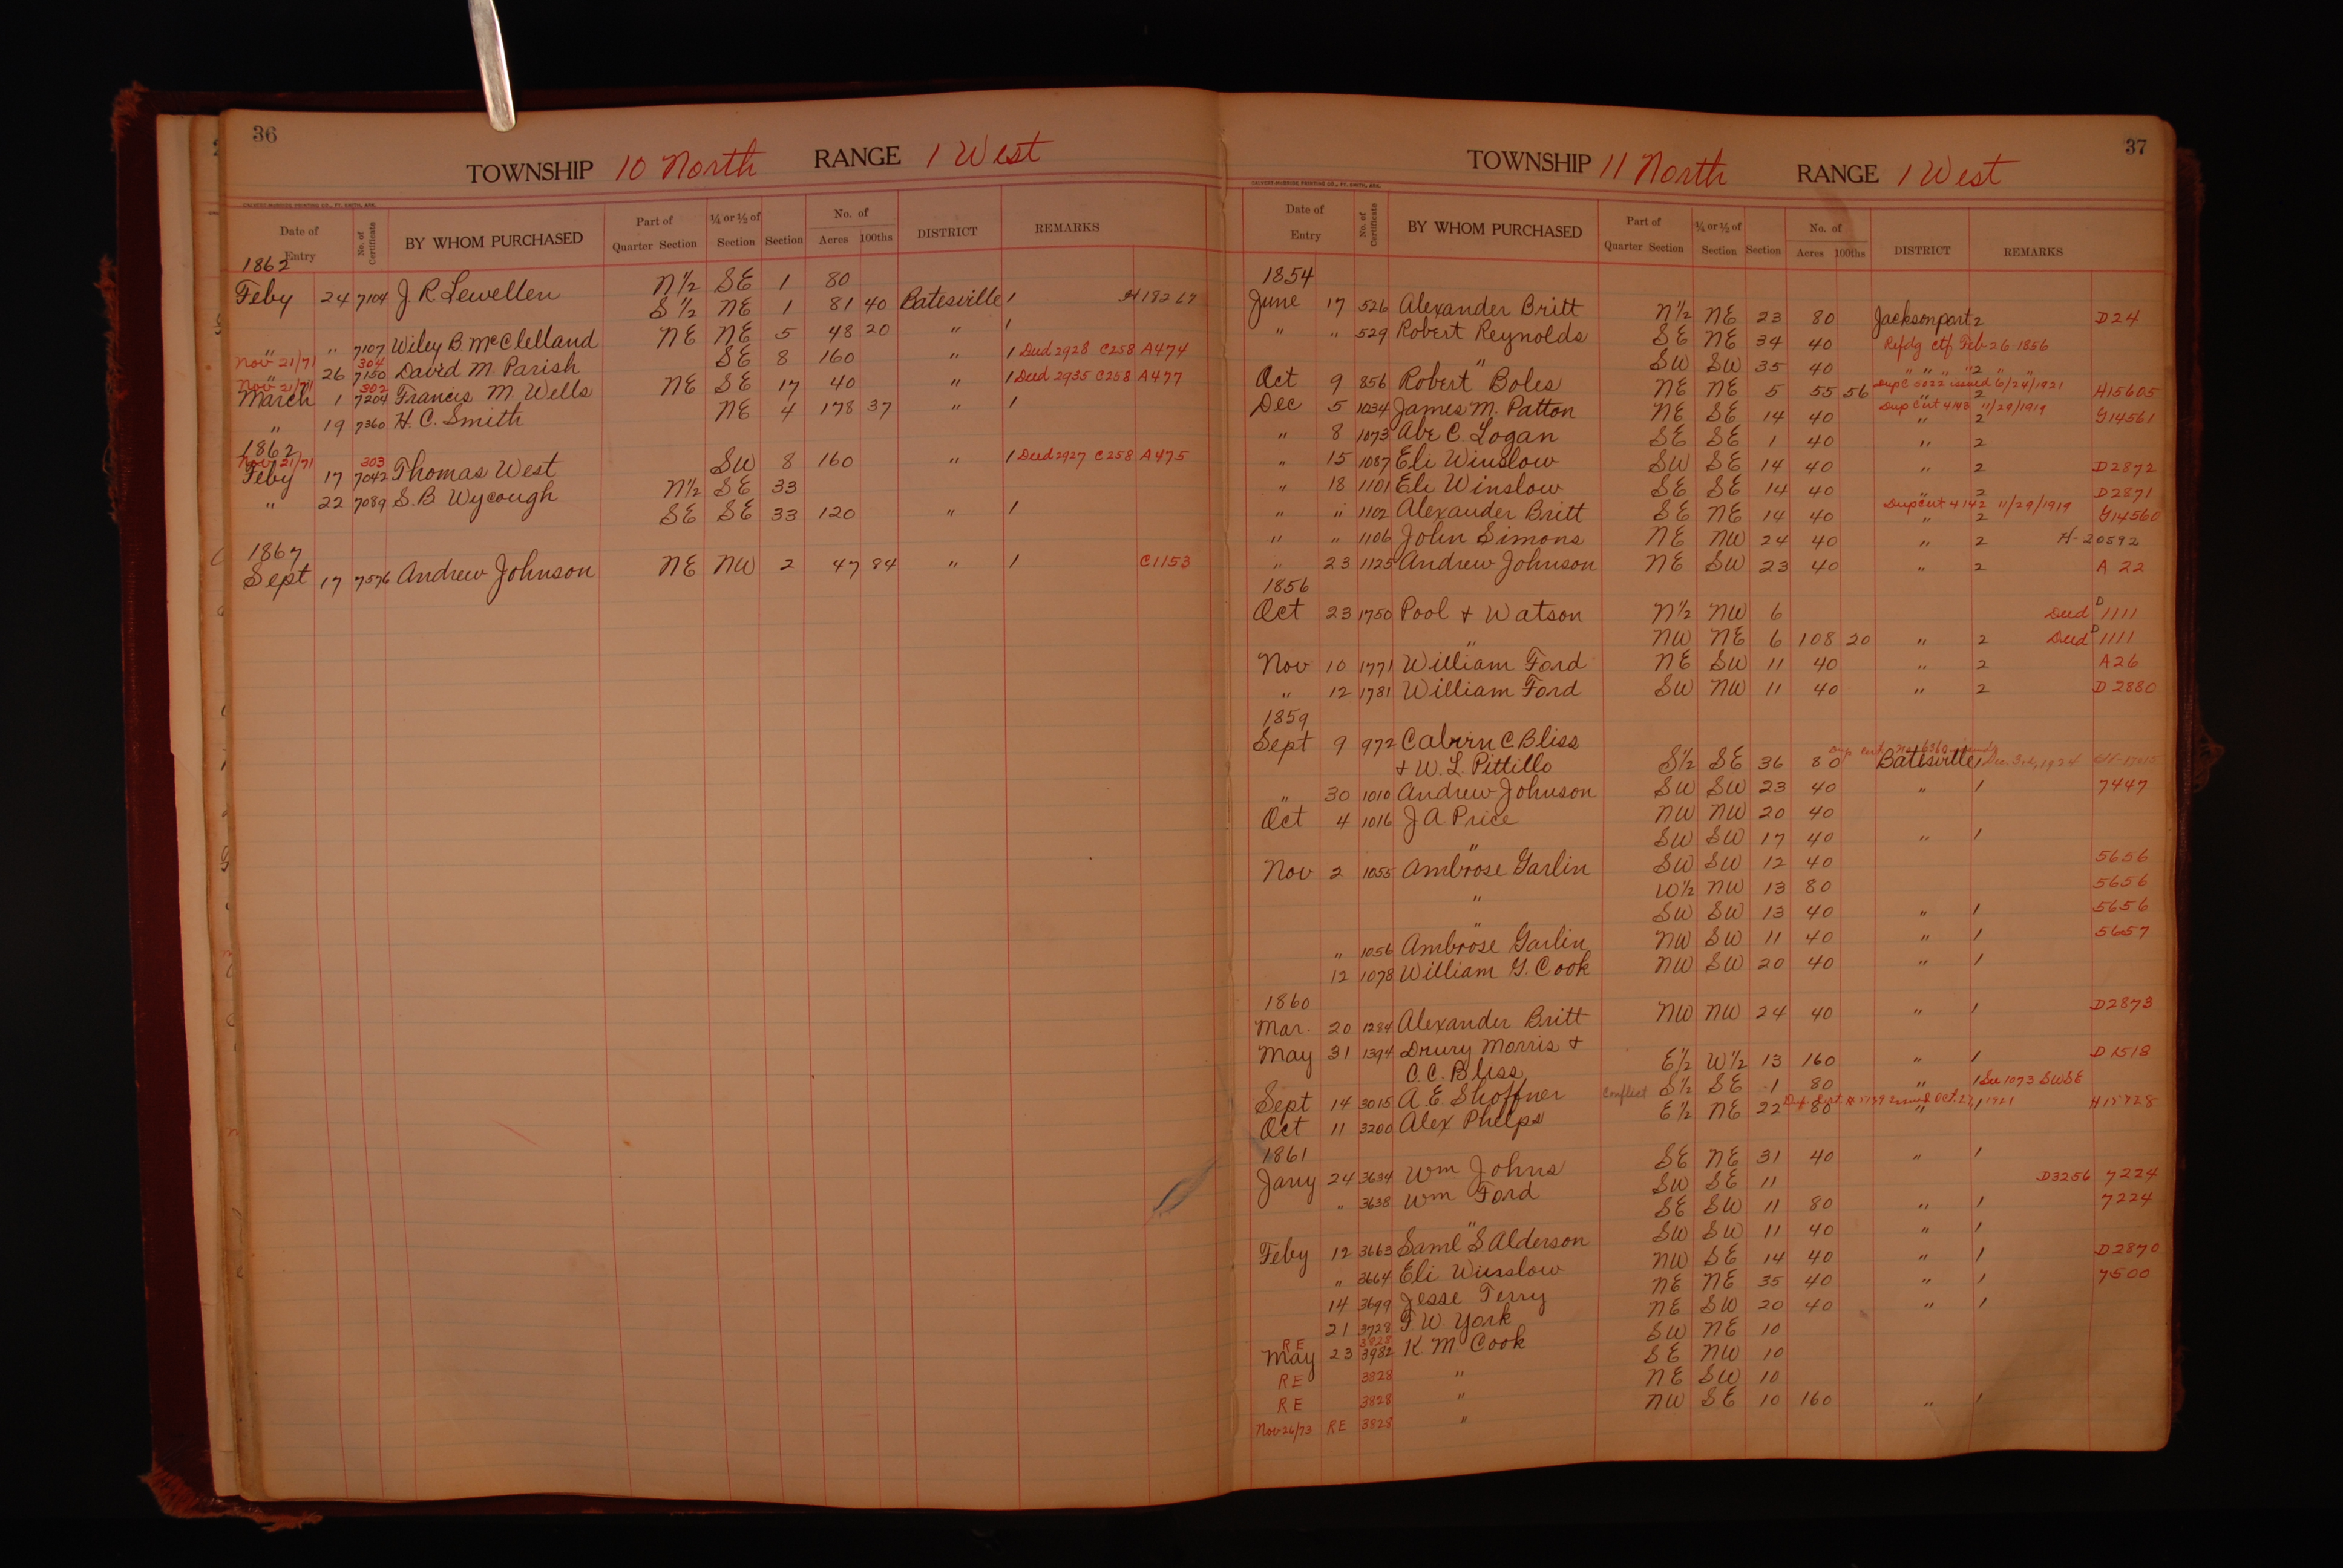 36
TOWNSHIP 10 North RANGE 1 West
CALVERT-McBRIDE PRINTING CO., FT. SMITH, ARK.
Date of Entry No. of Certificate BY WHOM PURCHASED Part of Quarter Section ¼ or ½ of Section Section No. of Acres 100ths DISTRICT REMARKS
1862
Feby 24 7104 J. R. Lewellen N½ SE 1 80
S½ NE 1 81 40 Batesville 1 H18267
" " 7107 Wiley B. McClelland NE NE 5 48 20 " 1
Nov 21/71 304
" 26 7150 David M. Parish SE 8 160 " 1 Deed 2928 C258 A474
Nov 21/71 302
March 1 7204 Francis M. Wells NE SE 17 40 " 1 Deed 2935 C258 A477
" 19 7360 H. C. Smith NE 4 178 37 " 1
1862
Nov 21/71 303
Feby 17 7042 Thomas West SW 8 160 " 1 Deed 2927 C258 A475
" 22 7089 S. B. Wycough N½ SE 33
SE SE 33 120 " 1
1867
Sept 17 7576 Andrew Johnson NE NW 2 47 84 " 1 C1153
37
TOWNSHIP 11 North RANGE 1 West
CALVERT-McBRIDE PRINTING CO., FT. SMITH, ARK.
Date of Entry No. of Certificate BY WHOM PURCHASED Part of Quarter Section ¼ or ½ of Section Section No. of Acres 100ths DISTRICT REMARKS
1854
June 17 526 Alexander Britt N½ NE 23 80 Jacksonport 2 D24
" " 529 Robert Reynolds SE NE 34 40 Refdg ctf Feb 26 1856
" SW SW 35 40 " " " " 2 "
Oct 9 856 Robert Boles NE NE 5 55 56 Dup C 5022 issued 6/24/1921 " 2 H15605
Dec 5 1034 James M. Patton NE SE 14 40 Dup Cert 4143 11/29/1919 " 2 G14561
" 8 1073 Abr C. Logan SE SE 1 40 " 2
" 15 1087 Eli Winslow SW SE 14 40 " 2 D2872
" 18 1101 Eli Winslow SE SE 14 40 " 2 D2871
" " 1102 Alexander Britt SE NE 14 40 Dup Cert 4142 11/29/1919 " 2 G14560
" " 1106 John Simons NE NW 24 40 " 2 H-20592
" 23 1125 Andrew Johnson NE SW 23 40 " 2 A 22
1856
Oct 23 1750 Pool & Watson N½ NW 6 Deed D 1111
" NW NE 6 108 20 " 2 Deed D 1111
Nov 10 1771 William Ford NE SW 11 40 " 2 A26
" 12 1781 William Ford SW NW 11 40 " 2 D 2880
1859
Sept 9 972 Calvin C Bliss
& W. L. Pittillo S½ SE 36 80 Batesville 1
" 30 1010 Andrew Johnson SW SW 23 40 " 1 7447
Oct 4 1016 J A Price NW NW 20 40
" SW SW 17 40 " 1
Nov 2 1055 Ambrose Garlin SW SW 12 40 5656
" W½ NW 13 80 5656
" SW SW 13 40 " 1 5656
" 1056 Ambrose Garlin NW SW 11 40 " 1 5657
12 1078 William G. Cook NW SW 20 40 " 1
1860
Mar. 20 1284 Alexander Britt NW NW 24 40 " 1 D2873
May 31 1394 Drury Morris &
C. C. Bliss E½ W½ 13 160 " 1 D 1518
Sept 14 3015 A. E. Shoffner Conflict S½ SE 1 80 " 1 See 1073 SWSE
Oct 11 3200 Alex Phelps E½ NE 22 80 " 1 H15728
1861
Jany 24 3634 Wm Johns SE NE 31 40 " 1
" 3638 Wm Ford SW SE 11 D3256 7224
" SE SW 11 80 " 1 7224
Feby 12 3663 Saml S Alderson SW SW 11 40 " 1
" 3664 Eli Winslow NW SE 14 40 " 1 D2870
14 3699 Jesse Terry NE NE 35 40 " 1 7500
21 3728 F W. York NE SW 20 40 " 1
RE 3828
May 23 3982 K M Cook SW NE 10
RE 3828 " SE NW 10
RE 3828 " NE SW 10
Nov 26/73 RE 3828 " NW SE 10 160 " 1